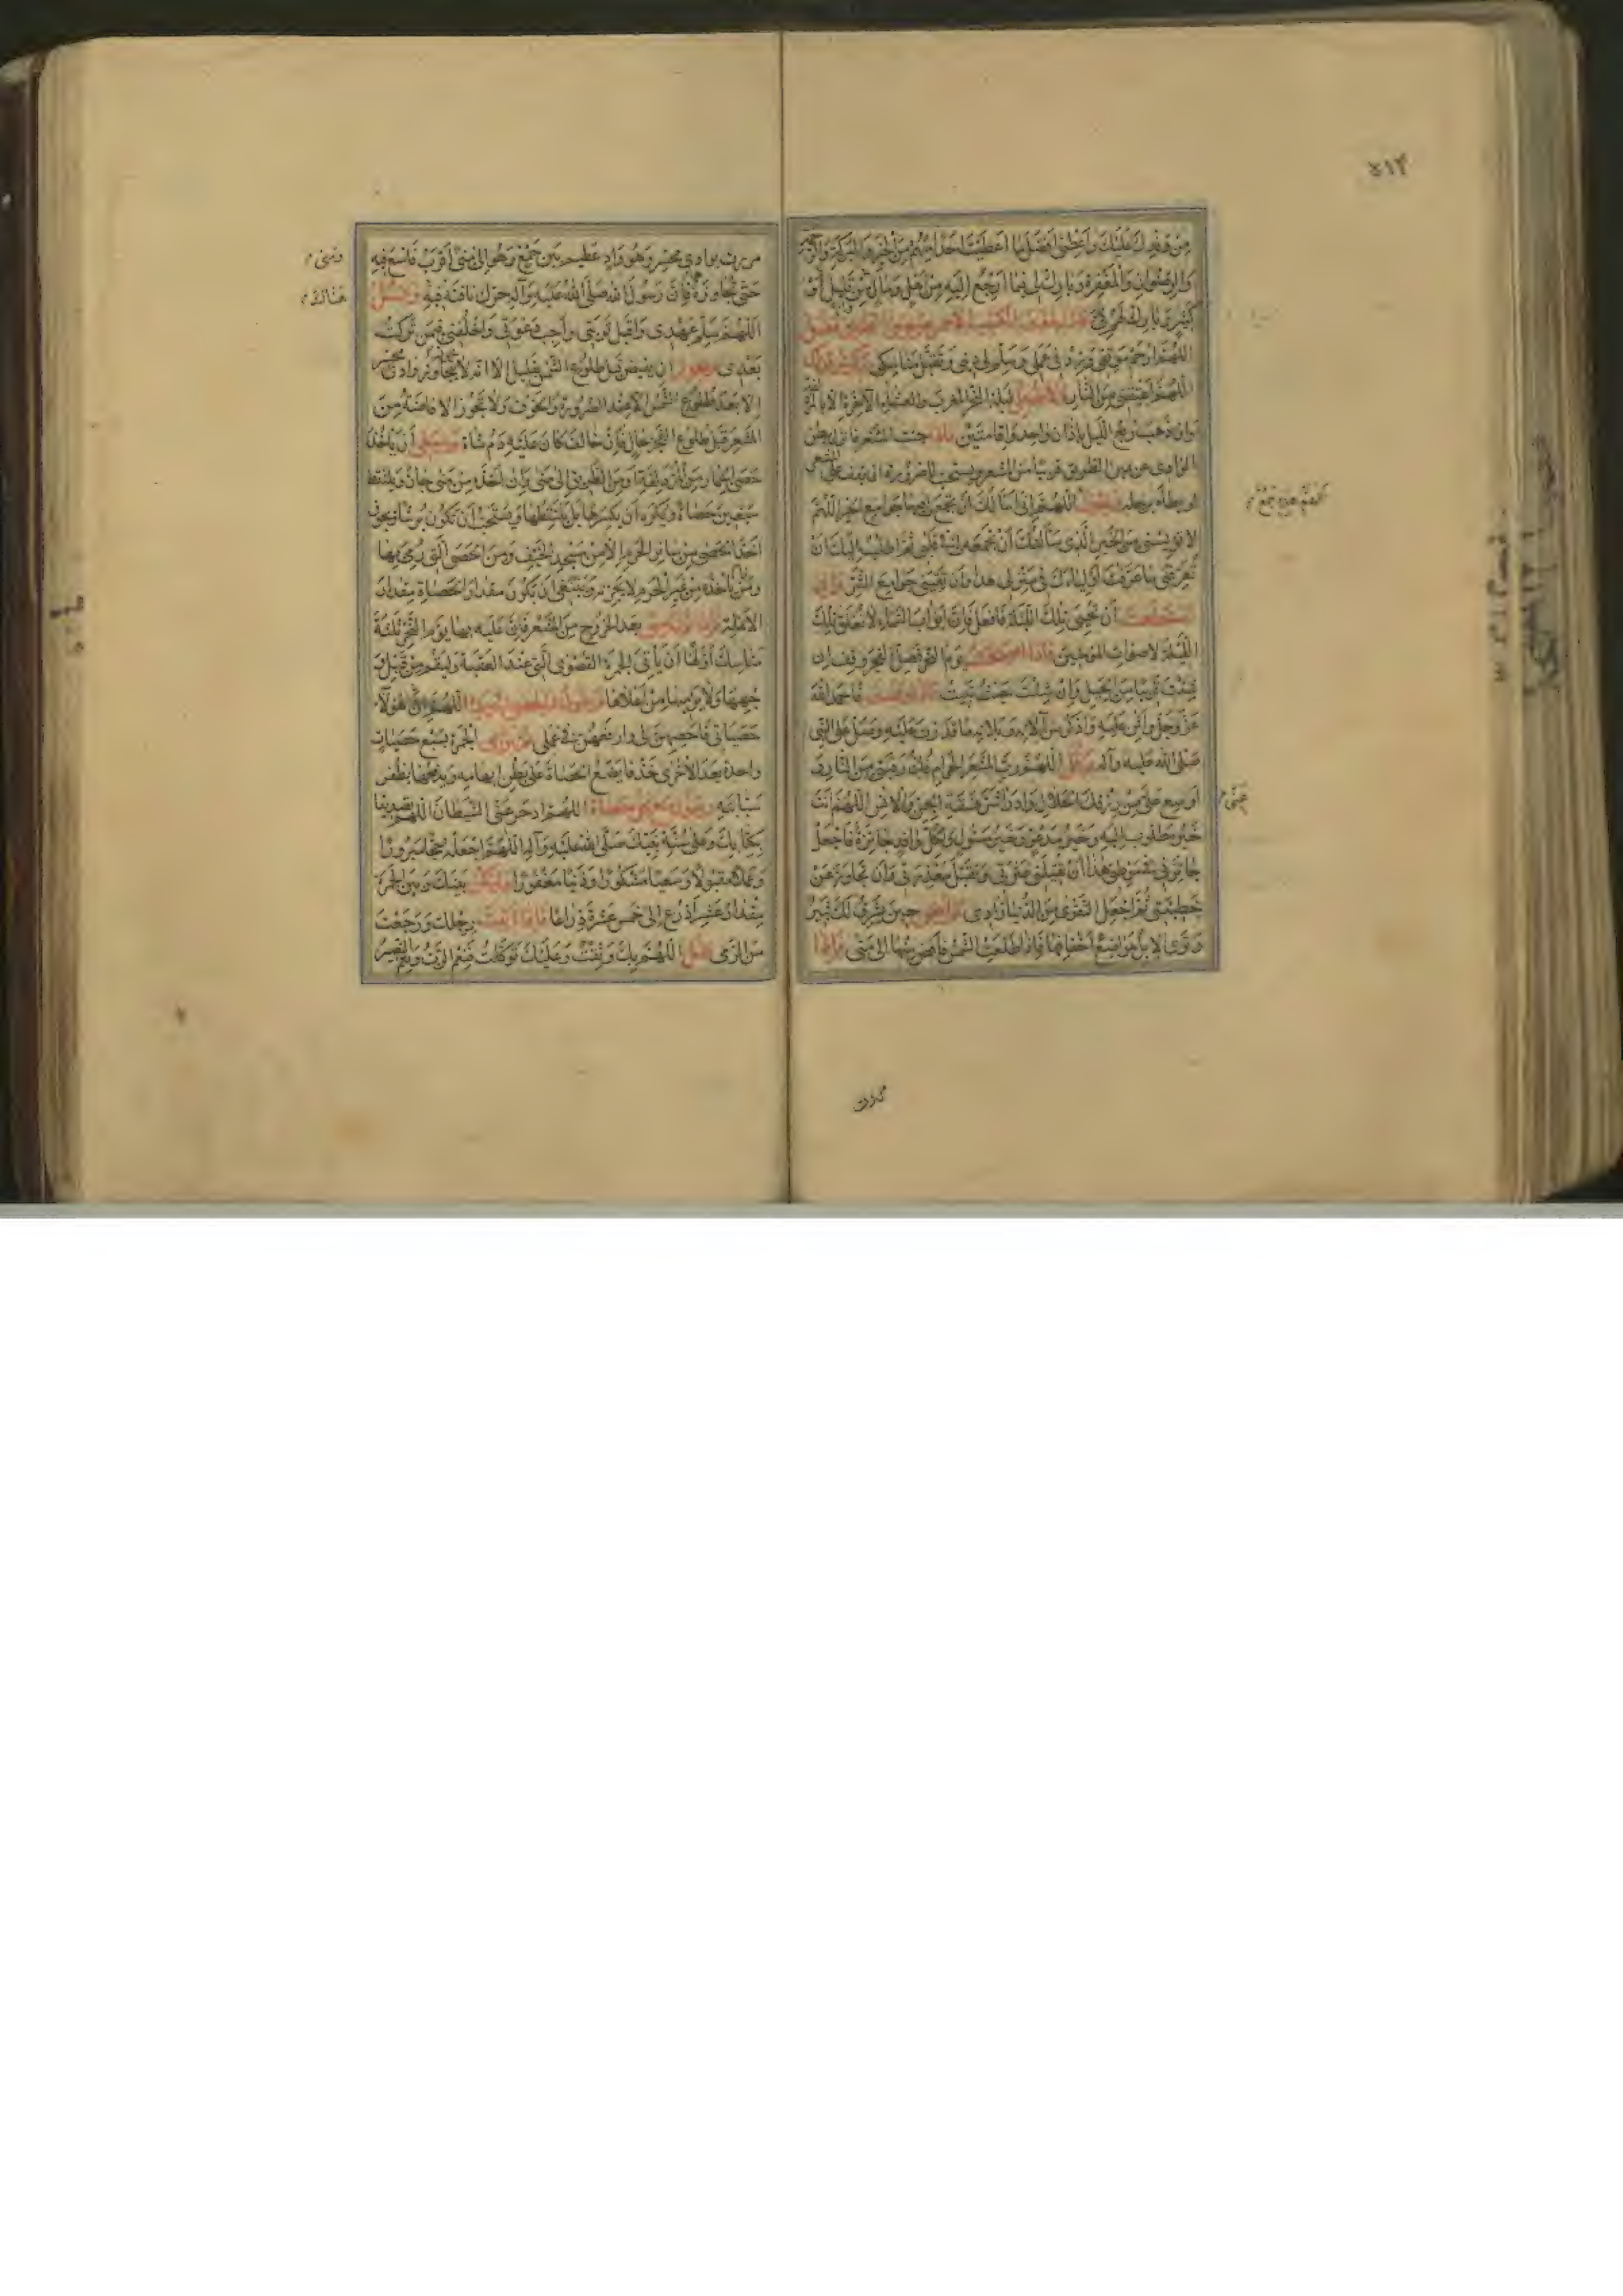 ٥١٣
من وفدك عليك وأعطني أفضل ما أعطيت أحداً منهم من الخير والبركة والرحمة
والرضوان والمغفرة وبارك لي فيما أرجع إليه من أهل ومال من قليل أو
كثير وبارك لهم فيّ فإذا بلغت الكثيب الأحمر عن يمين الطريق فقل
اللهم ارحم موقفي وزد في عملي وسلم لي ديني وتقبل مناسكي
اللهم أعتقني من النار ولا تصل ليلة النحر المغرب والعشاء الآخرة إلا بالمزدلفة
وإن ذهب ربع الليل بأذان واحد وإقامتين فإذا جئت المشعر فانزل بطن
الوادي عن يمين الطريق قريباً من المشعر ويستحب للصرورة أن يقف على المشعر
أو يطأه برجله اللهم إني أسألك أن تجمع لي فيها جوامع الخير اللهم
لا تؤيسني من الخير الذي سألتك أن تجمعه لي في قلبي ثم أطلب إليك أن
تعرفني ما عرفت أولياءك في منزلي هذا وأن تقيني جوامع الشر وإن
استطعت أن تحيي تلك الليلة فافعل فإن أبواب السماء لا تغلق تلك
الليلة لأصوات المؤمنين فإذا أصبحت يوم النحر فصل الفجر وقف إن
شئت قريباً من الجبل وإن شئت حيث تبيت فإذا وقفت فاحمد الله
عز وجل وأثن عليه واذكر من آلائه وبلائه ما قدرت عليه وصل على النبي
صلى الله عليه وآله وقل اللهم رب المشعر الحرام فك رقبتي من النار و
أوسع علي من رزقك الحلال وادرأ شر فسقة الجن والإنس اللهم أنت
خير مطلوب إليه وخير مدعو وخير مسؤول ولكل وافد جائزة فاجعل
جائزتي في موطني هذا أن تقيلني عثرتي وتقبل معذرتي وأن تجاوز عن
خطيئتي ثم اجعل التقوى من الدنيا زادي ثم أفض حين يشرق لك ثبير
وترى الإبل مواضع أخفافها فإذا طلعت الشمس فأفض منها إلى منى فإذا
مررت
مررت بوادي محسر وهو واد عظيم بين جمع وهو إلى منى أقرب فاسع فيه
حتى تجاوزه فإن رسول الله صلى الله عليه وآله حرك ناقته فيه وقل
اللهم سلم عهدي واقبل توبتي وأجب دعوتي واخلفني فيمن تركت
بعدي ويجوز أن يفيض قبل طلوع الشمس بقليل إلا أنه لا يتجاوز وادي محسر
إلا بعد طلوع الشمس إلا عند الضرورة والخوف ولا تجوز الإفاضة من
المشعر قبل طلوع الفجر بحال فإن خالف كان عليه دم شاة وينبغي أن يأخذ
حصى الجمار من المزدلفة أو من الطريق إلى منى وإن أخذه من منى جاز ويلتقط
سبعين حصاة ويكره أن يكسرها بل يلتقطها ويستحب أن تكون برشا ويجوز
أخذ الحصى من سائر الحرم إلا من مسجد الخيف ومن الحصى التي رمي بها
ومن أخذه من غير الحرم لا يجزئه وينبغي أن يكون مقدار الحصاة مقدار
الأنملة بعد الخروج من المشعر فإن عليه بها يوم النحر ثلثة
مناسك أولها أن يأتي الجمرة القصوى التي عند العقبة وليقم من قبل و
جهها ولا يرميها من أعلاها اللهم إن هؤلاء
حصياتي فأحصهن لي وارفعهن في عملي ثم يرمي الجمرة بسبع حصيات
واحدة بعد الأخرى خذفاً يضع الحصاة على بطن إبهامه ويدفعها بظفر
سبابته ويقول مع كل حصاة اللهم ادحر عني الشيطان اللهم تصديقا
بكتابك وعلى سنة نبيك صلى الله عليه وآله اللهم اجعله حجا مبرورا
وعملا مقبولا وسعيا مشكورا وذنبا مغفورا وليكن بينك وبين الجمرة
مقدار عشر أذرع إلى خمس عشرة ذراعا فإذا أتيت رحلك ورجعت
من الرمي فقل اللهم بك وثقت وعليك توكلت فنعم الرب ونعم النصير